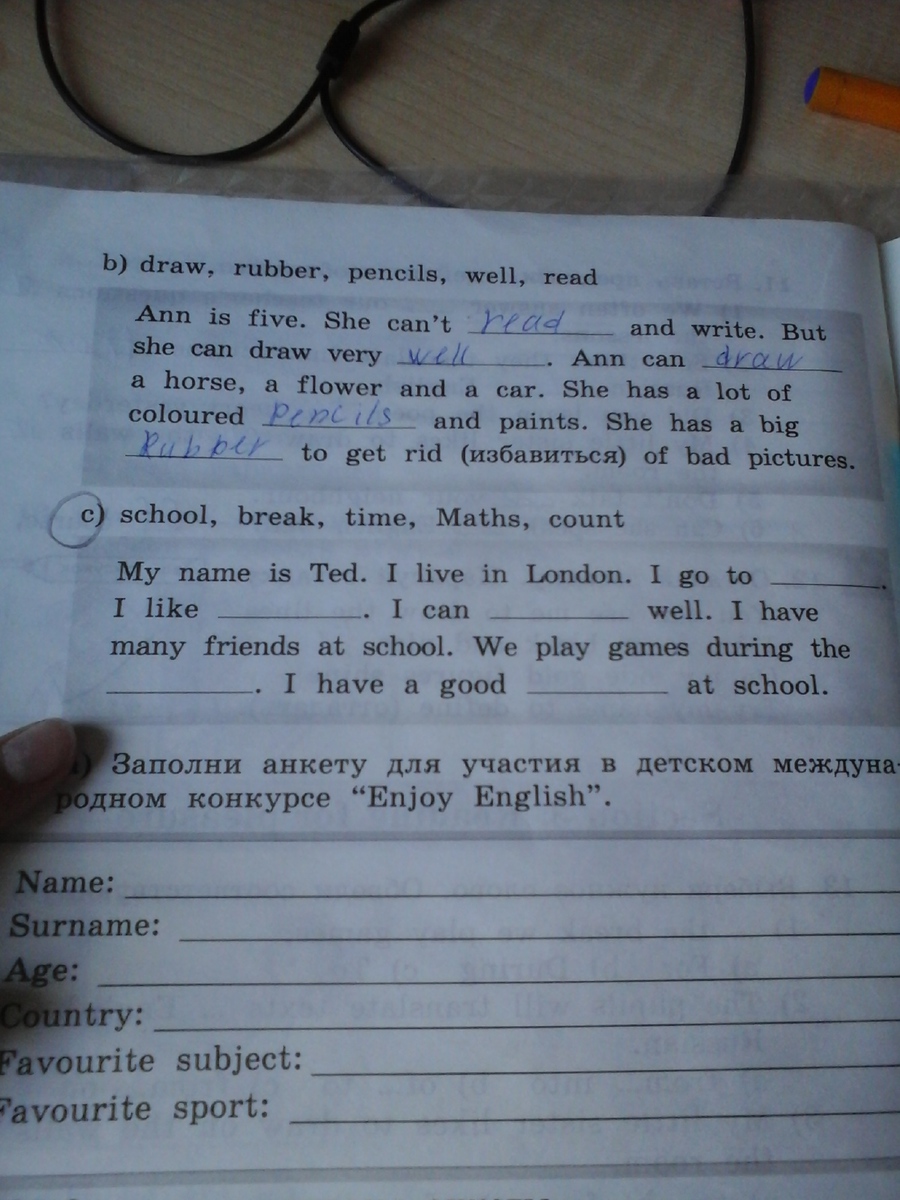 b) draw, rubber, pencils, well, read
Ann is five. She can't read and write. But
she can draw very well. Ann can draw
a horse, a flower and a car. She has a lot of
coloured pencils and paints. She has a big
Rubber to get rid (избавиться) of bad pictures.
c) school, break, time, Maths, count
My name is Ted. I live in London. I go to ________.
I like ________. I can ________ well. I have
many friends at school. We play games during the
________. I have a good ________ at school.
) Заполни анкету для участия в детском междуна-
родном конкурсе “Enjoy English”.
Name:
Surname:
Age:
Country:
Favourite subject:
Favourite sport: